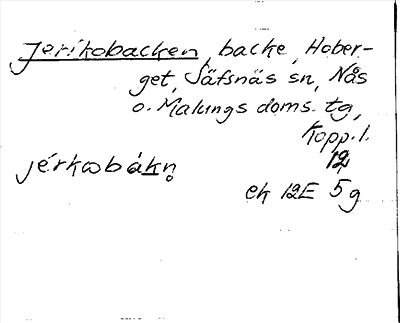 Jerikobacken, backe, Hober-
get, Säfsnäs sn, Nås
o. Malungs doms. tg,
Kopp. l.
12
jérkωbákn̥
ek 12E 5g